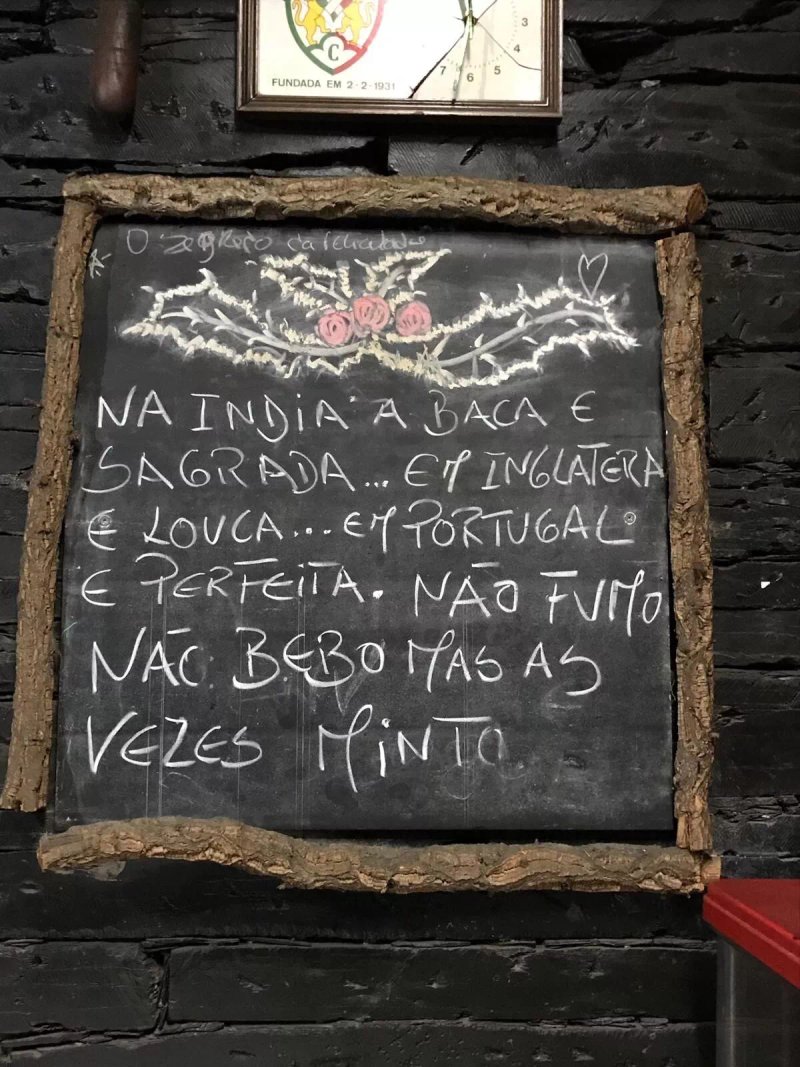 C
FUNDADA EM 2-2-1931
3
4
7 6 5
O segredo
NA INDIA A BACA E
SAGRADA... EM INGLATERA
E LOUCA... EM PORTUGAL
E PERFEITA. NÃO FUMO
NÃO BEBO MAS AS
VEZES MINTO